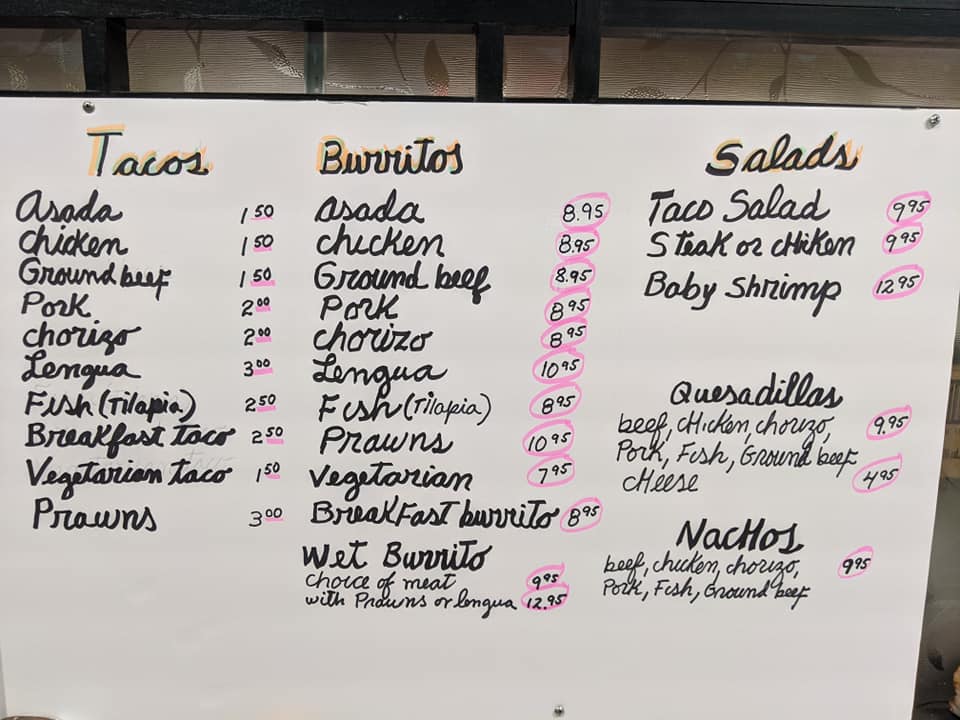 Tacos
Asada 1 50
Chicken 1 50
Ground beef 1 50
Pork 2 00
chorizo 2 00
Lengua 3 00
Fish (Tilapia) 2 50
Breakfast taco 2 50
Vegetarian taco 1 50
Prawns 3 00
Burritos
Asada 8.95
chicken 8.95
Ground beef 8.95
Pork 8 95
chorizo 8 95
Lengua 10 95
Fish (Tilapia) 8 95
Prawns 10 95
vegetarian 7 95
BreakFast burrito 8 95
Wet Burrito
choice of meat 9 95
with Prawns or lengua 12.95
Salads
Taco Salad 9 95
Steak or cHiken 9 95
Baby shrimp 12 95
Quesadillas
beef, cHicken, chorizo, 9.95
Pork, Fish, Ground beef
cHeese 4 95
NacHos
beef, chicken, chorizo, 9 95
Pork, Fish, Ground beef